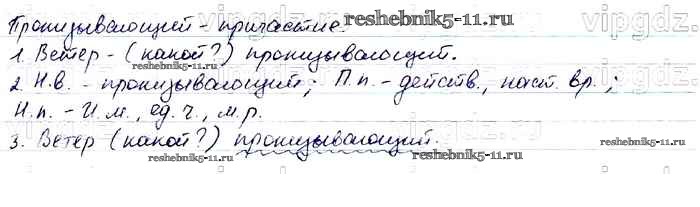 Пронизывающий - причастие.
1. Ветер - (какой?) пронизывающий.
2. Н.в. - пронизывающий; П.п. - действ., наст. вр.;
Н.п. - И.п., ед. ч., м.р.
3. Ветер (какой?) пронизывающий.
reshebnik5-11.ru
reshebnik5-11.ru
reshebnik5-11.ru
reshebnik5-11.ru
vipgdz.
vipgdz.